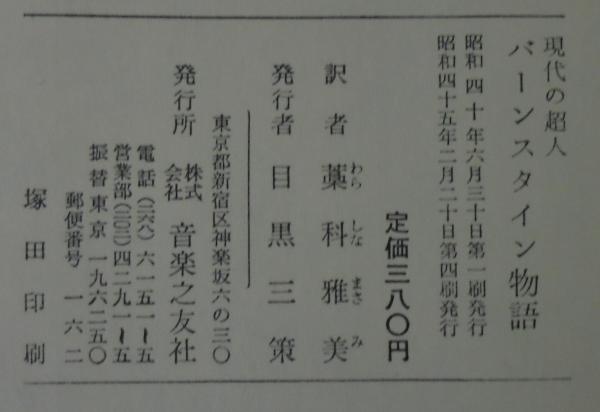 現代の超人
バーンスタイン物語
昭和四十年六月三十日第一刷発行
昭和四十五年二月二十日第四刷発行
定価三八〇円
訳者 藁科雅美
わら しな まさ み
発行者 目黒三策
東京都新宿区神楽坂六の三〇
発行所 株式会社 音楽之友社
電話(二六八)六一五一〜五
営業部(二〇三)四二九一〜五
振替東京 一九六二五〇
郵便番号 一六二
塚田印刷